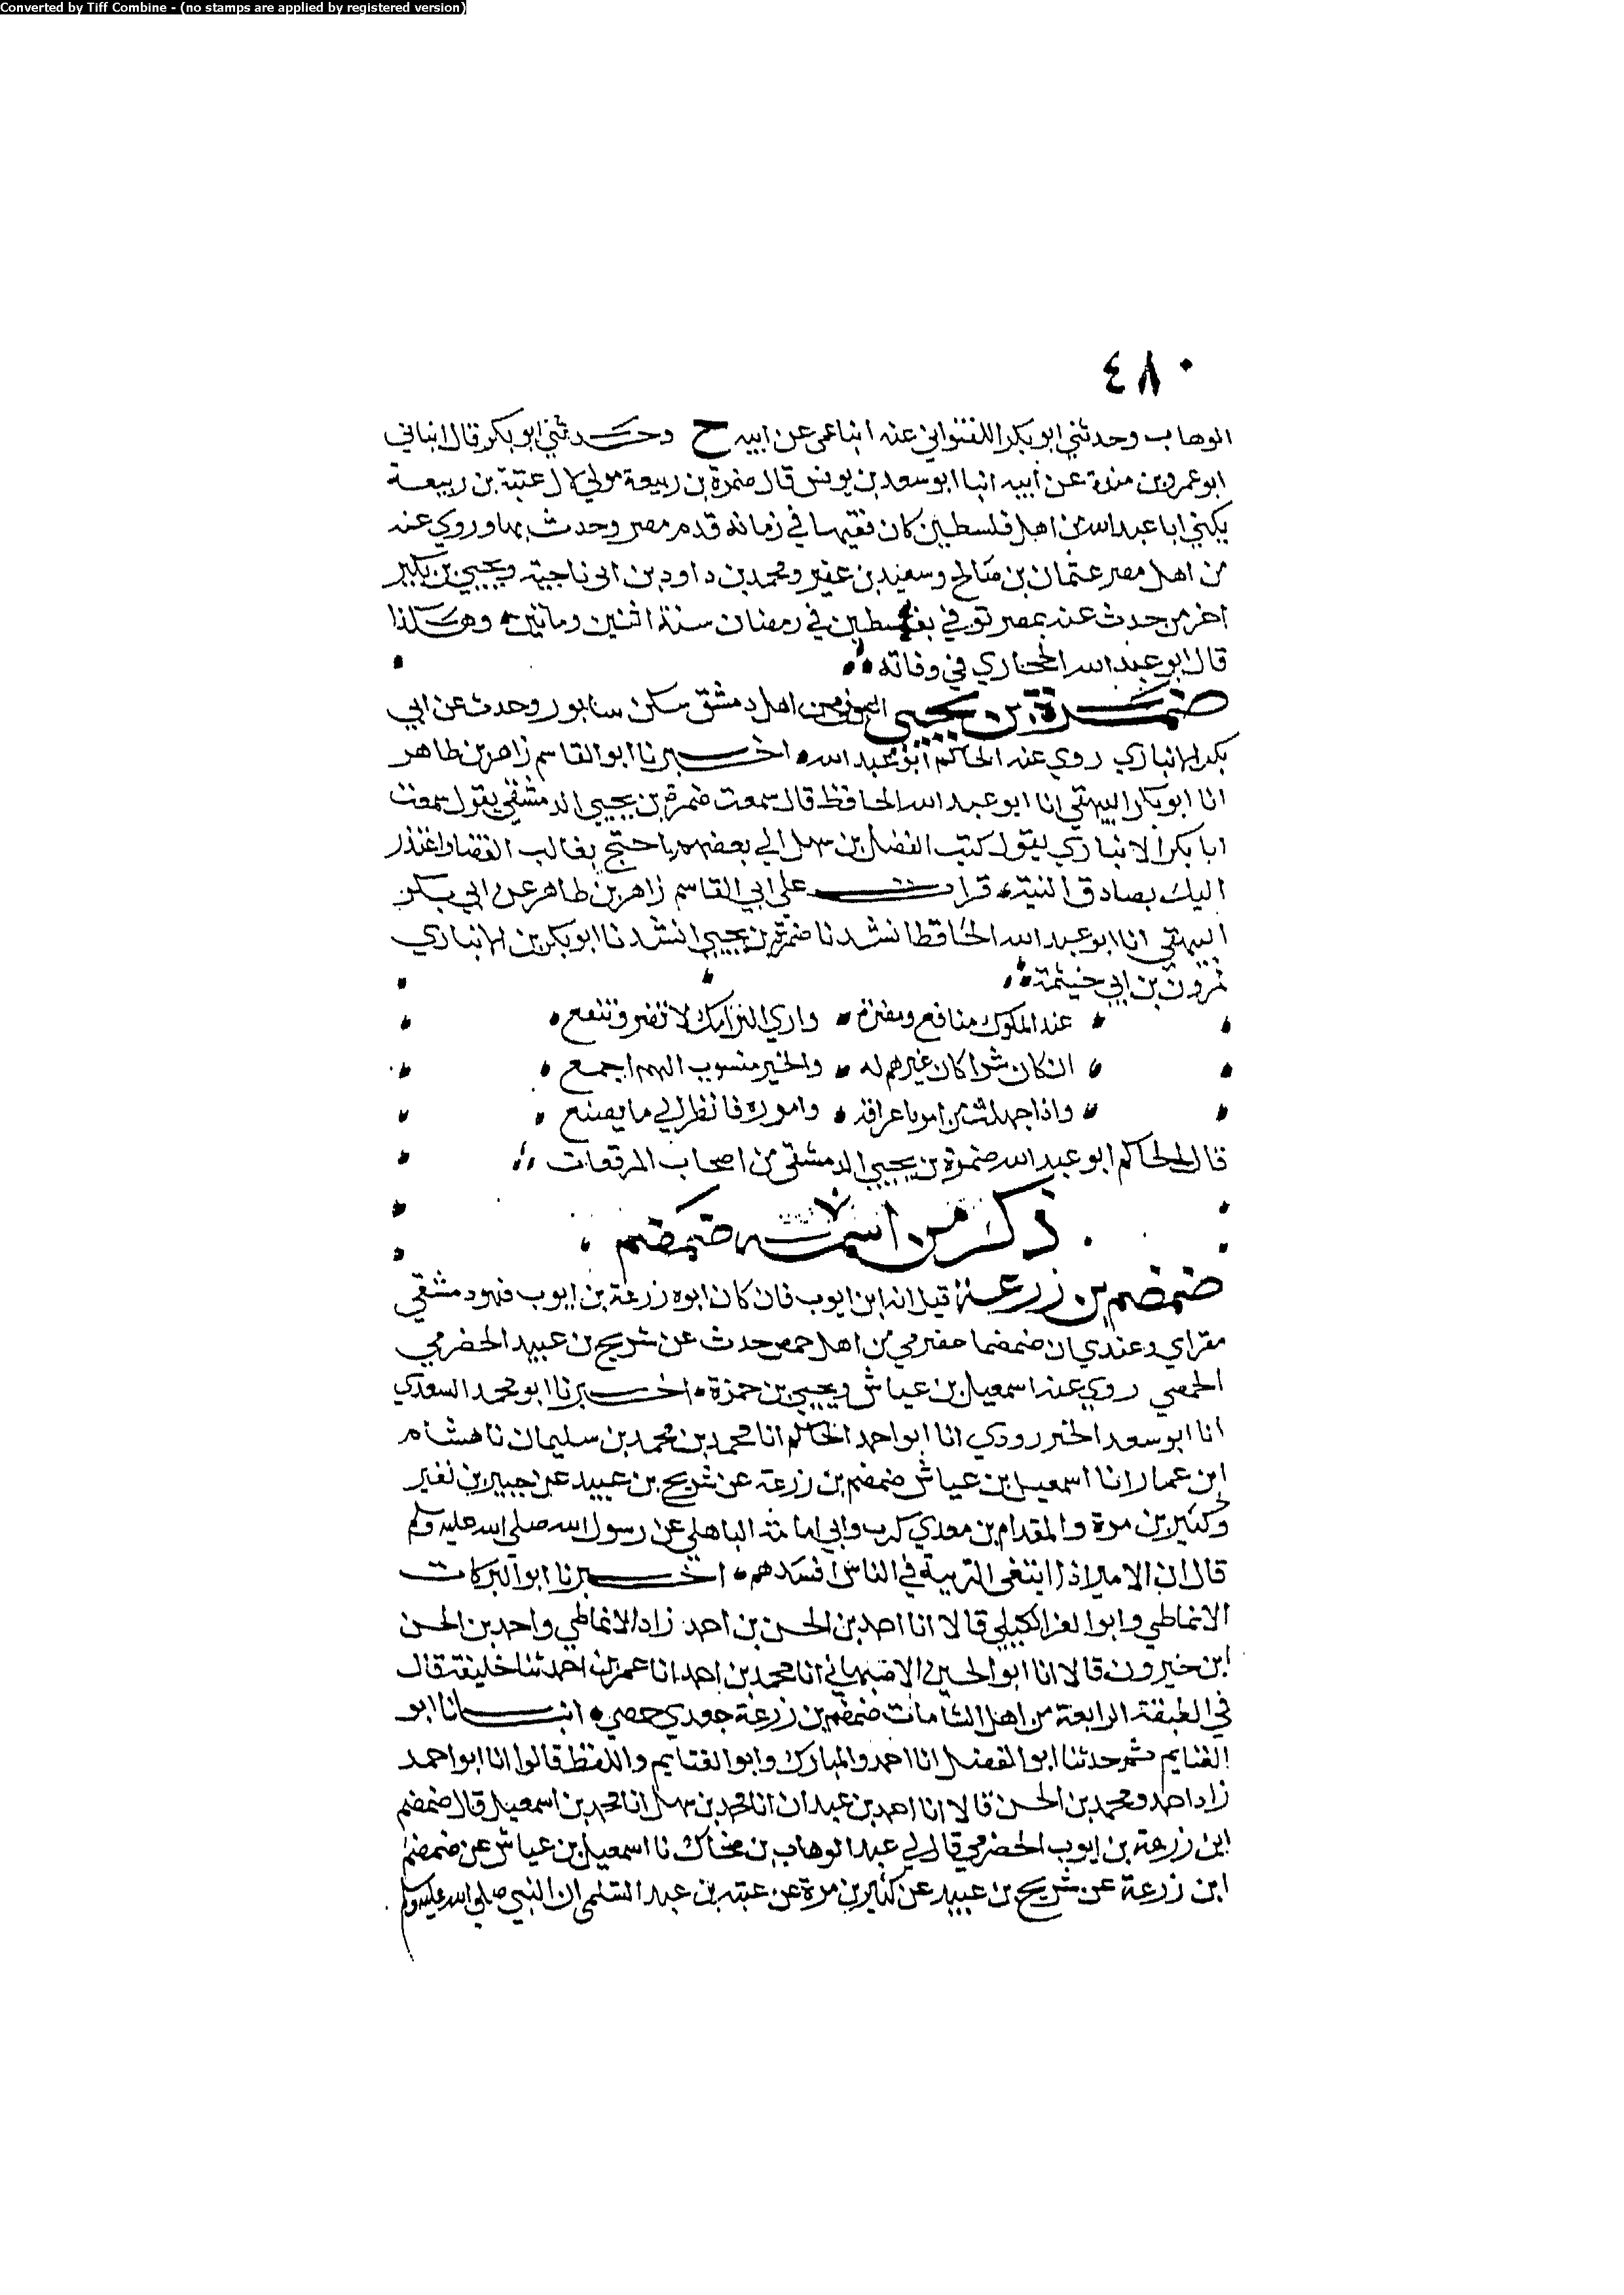 Converted by Tiff Combine - (no stamps are applied by registered version)
٤٨٠
الوهاب وحدثني ابو بكر اللفتواني عنه انبا عمي عن ابيه ح وحدثني ابو بكر قال انباني
ابو عمرو بن مندة عن أبيه انبا ابو سعد بن يونس قال ضمرة بن ربيعة مولي لال عتبة بن ربيعة
يكني ابا عبد الله من اهل فلسطين كان فقيها في زمانه قدم مصر وحدث بها وروي عنه
من اهل مصر عثمان بن صالح وسعيد بن عفير ومحمد بن داود بن ابى ناجية ويحيي بن بكير
اخر من حدث عنه بمصر توفي بفلسطين في رمضان سنة اثنين وماتين وهكذا
قال ابو عبد الله البخاري في وفاته
ضمرة بن يحيي الصوفي من اهل دمشق سكن سابور وحدث عن ابي
بكر الانباري روي عنه الحاكم ابو عبد الله اخبرنا ابو القاسم زاهر بن طاهر
انا ابو بكر البيهقي انا ابو عبد الله الحافظ قال سمعت ضمرة بن يحيي الدمشقي يقول سمعت
ابا بكر الانباري يقول كتب الفضل بن سهل الي بعضهم يا حتج بغالب القضا واعتذر
اليك بصادق النية قرات علي ابي القاسم زاهر بن طاهر عن ابي بكر
البيهقي انا ابو عبد الله الحافظ انشدنا ضمرة بن يحيي انشدنا ابو بكر بن الانباري
بن ابي خيثمة
عند الملوك منافع ومضرة واري البرامك لا تضر وتنفع
ان كان شرا كان غيرهم له والخير منسوب اليهم اجمع
واذا جهلت من امرء اعراقه واموره فانظر الي ما يصنع
قال لحاكم ابو عبد الله ضمرة بن يحيي الدمشقي من اصحاب المرقعات
ذكر من اسمه ضمضم
ضمضم بن زرعة قيل انه ابن ايوب فان كان ابوه زرعة بن ايوب فهو دمشقي
مقراي وعندي ان ضمضما حضرمي من اهل حمص حدث عن شريح بن عبيد الحضرمي
الحمصي روي عنه اسمعيل بن عياش ويحيي بن حمزة اخبرنا ابو محمد السعدي
انا ابو سعد الخنزرودي انا ابو احمد الحاكم انا محمد بن محمد بن سليمان نا هشام
ابن عمار انا اسمعيل بن عياش ضمضم بن زرعة عن شريح بن عبيد عن جبير بن نفير
وكثير بن مرة والمقدام بن معدي كرب وابي امامة الباهلي عن رسول الله صلي الله عليه وسلم
قال ان الامير اذا ابتغى الريبة في الناس افسدهم اخبرنا ابو البركات
الانماطي وابو العز الكيلي قالا انا احمد بن الحسن بن احمد زاد الانماطي واحمد بن الحسن
ابن خيرون قالا انا ابو الحسين الاصبهاني انا محمد بن احمد انا عمر بن احمد ثنا خليفة قال
في الطبقة الرابعة من اهل الشامات ضمضم بن زرعة جعدي حمصي انبانا ابو
الغنايم ثم حدثنا ابو الفضل انا احمد والمبارك وابو الغنايم واللفظ قالوا انا ابو احمد
زاد احمد ومحمد بن الحسن قالا انا احمد بن عبدان انا محمد بن سهل انا محمد بن اسمعيل قال ضمضم
ابن زرعة بن ايوب الحضرمي قال لي عبد الوهاب بن ضحاك نا اسمعيل بن عياش عن ضمضم
ابن زرعة عن شريح بن عبيد عن كثير بن مرة عن عتبه بن عبد السلمى ان النبي صلي الله عليه وسلم